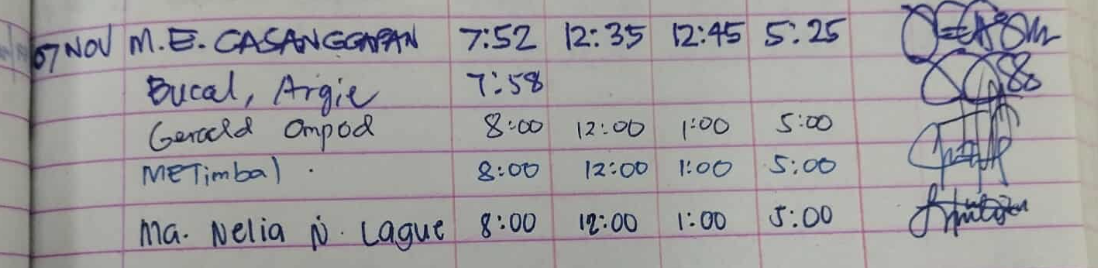 07 NOV M.E. CASANGGAPAN 7:52 12:35 12:45 5:25
Bucal, Argie 7:58
Gerald Ompod 8:00 12:00 1:00 5:00
METimbal . 8:00 12:00 1:00 5:00
Ma. Nelia N. Lague 8:00 12:00 1:00 5:00